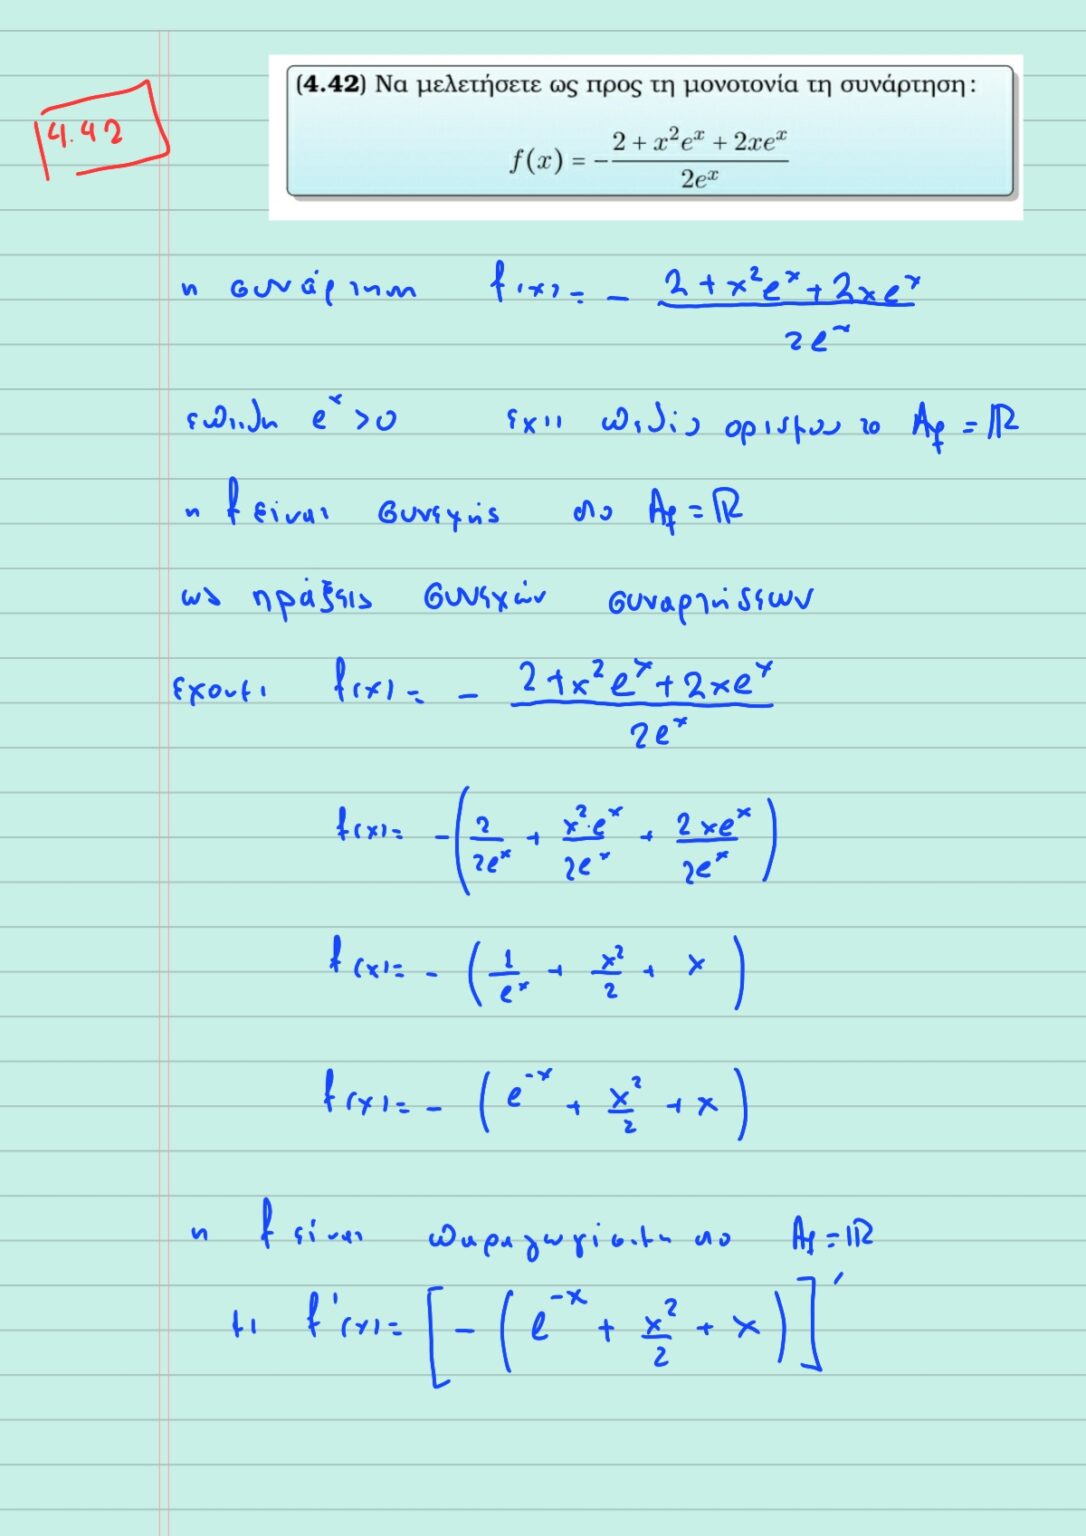 4.42
(4.42) Να μελετήσετε ως προς τη μονοτονία τη συνάρτηση:
f(x) = -\frac{2 + x^2e^x + 2xe^x}{2e^x}
η συνάρτηση f(x) = - \frac{2 + x^2e^x + 2xe^x}{2e^x}
επειδή e^x > 0 έχει πεδίο ορισμού το A_f = ℝ
η f είναι συνεχής στο A_f = ℝ
ως πράξεις συνεχών συναρτήσεων
έχουμε f(x) = - \frac{2 + x^2e^x + 2xe^x}{2e^x}
f(x) = -(\frac{2}{2e^x} + \frac{x^2·e^x}{2e^x} + \frac{2xe^x}{2e^x})
f(x) = -(\frac{1}{e^x} + \frac{x^2}{2} + x)
f(x) = -(e^{-x} + \frac{x^2}{2} + x)
η f είναι παραγωγίσιμη στο A_f = ℝ
με f'(x) = [-(e^{-x} + \frac{x^2}{2} + x)]'